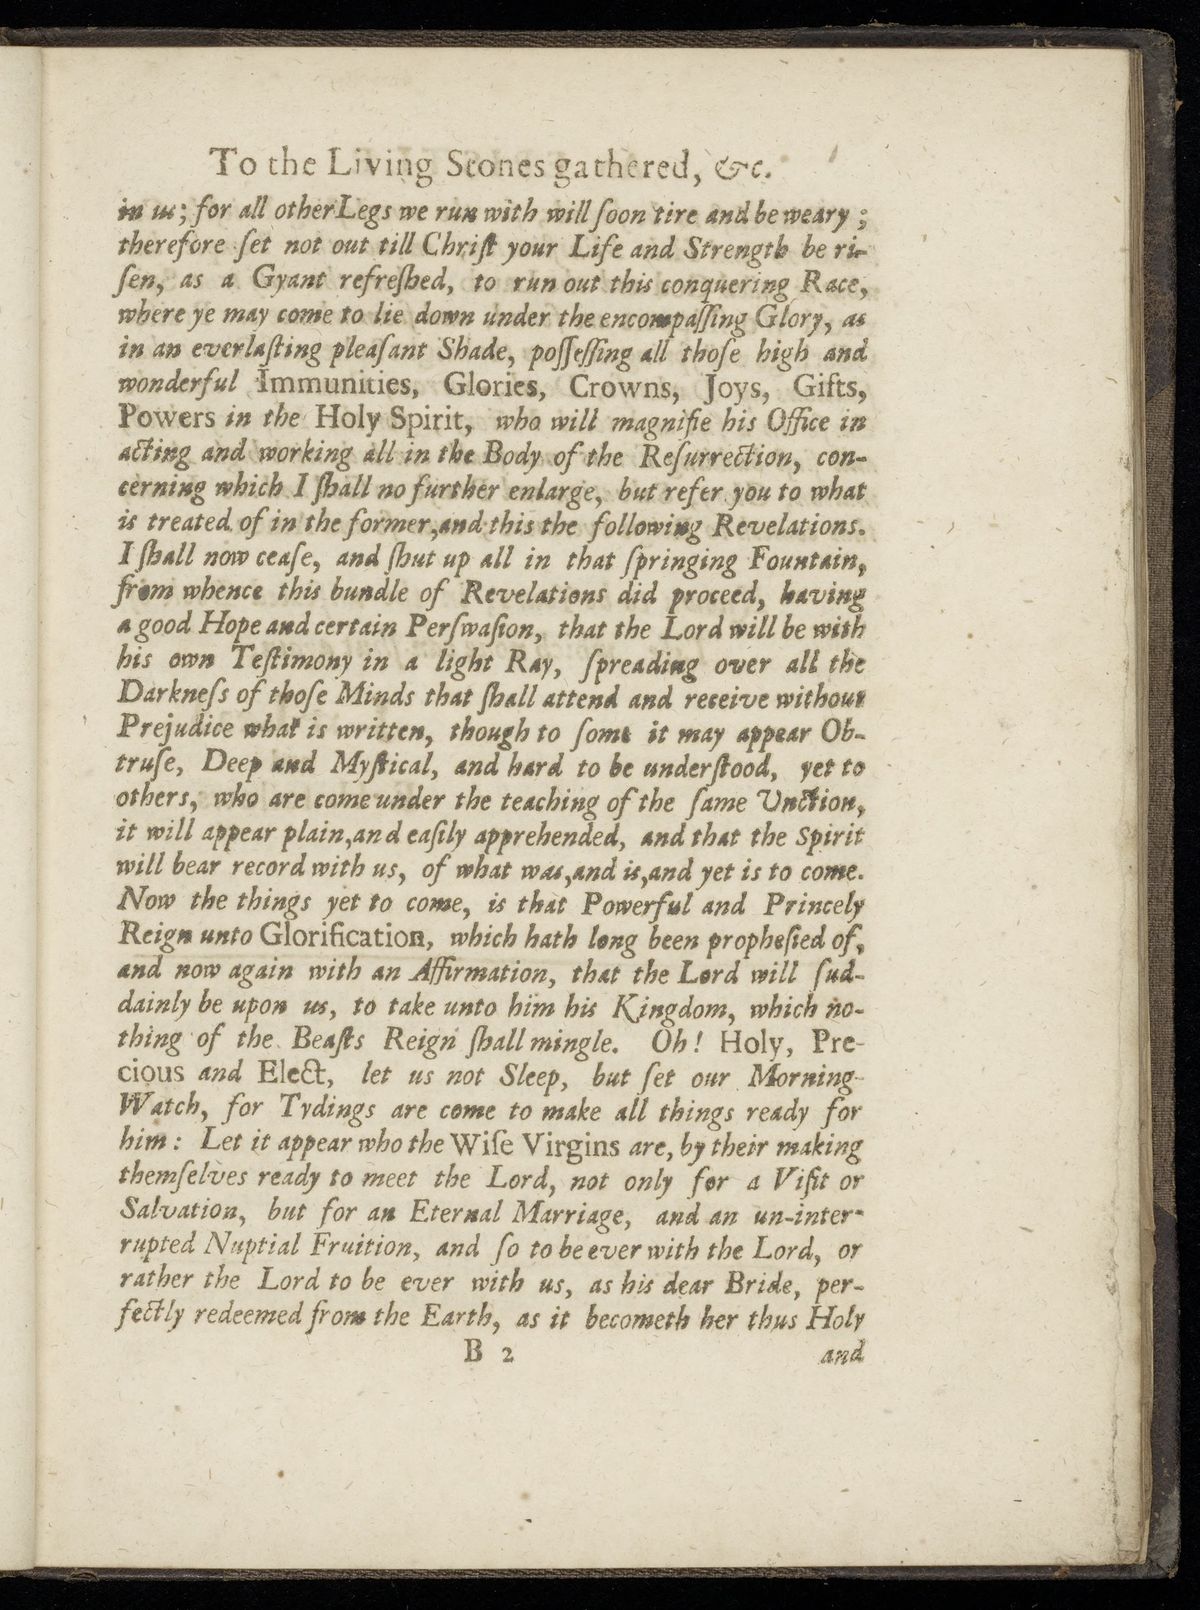 To the Living Stones gathered, &c.
in us; for all other Legs we run with will ſoon tire and be weary;
therefore ſet not out till Chriſt your Life and Strength be ri-
ſen, as a Gyant refreſhed, to run out this conquering Race,
where ye may come to lie down under the encompaſſing Glory, as
in an everlaſting pleaſant Shade, poſſeſſing all thoſe high and
wonderful Immunities, Glories, Crowns, Joys, Gifts,
Powers in the Holy Spirit, who will magnifie his Office in
acting and working all in the Body of the Reſurrection, con-
cerning which I ſhall no further enlarge, but refer you to what
is treated of in the former, and this the following Revelations.
I ſhall now ceaſe, and ſhut up all in that ſpringing Fountain,
from whence this bundle of Revelations did proceed, having
a good Hope and certain Perſwaſion, that the Lord will be with
his own Teſtimony in a light Ray, ſpreading over all the
Darkneſs of thoſe Minds that ſhall attend and receive without
Prejudice what is written, though to ſome it may appear Ob-
truſe, Deep and Myſtical, and hard to be underſtood, yet to
others, who are come under the teaching of the ſame Unction,
it will appear plain, and eaſily apprehended, and that the Spirit
will bear record with us, of what was, and is, and yet is to come.
Now the things yet to come, is that Powerful and Princely
Reign unto Glorification, which hath long been propheſied of,
and now again with an Affirmation, that the Lord will ſud-
dainly be upon us, to take unto him his Kingdom, which no-
thing of the Beaſts Reign ſhall mingle. Oh! Holy, Pre-
cious and Elect, let us not Sleep, but ſet our Morning-
Watch, for Tydings are come to make all things ready for
him: Let it appear who the Wiſe Virgins are, by their making
themſelves ready to meet the Lord, not only for a Viſit or
Salvation, but for an Eternal Marriage, and an un-inter-
rupted Nuptial Fruition, and ſo to be ever with the Lord, or
rather the Lord to be ever with us, as his dear Bride, per-
fectly redeemed from the Earth, as it becometh her thus Holy
B 2
and